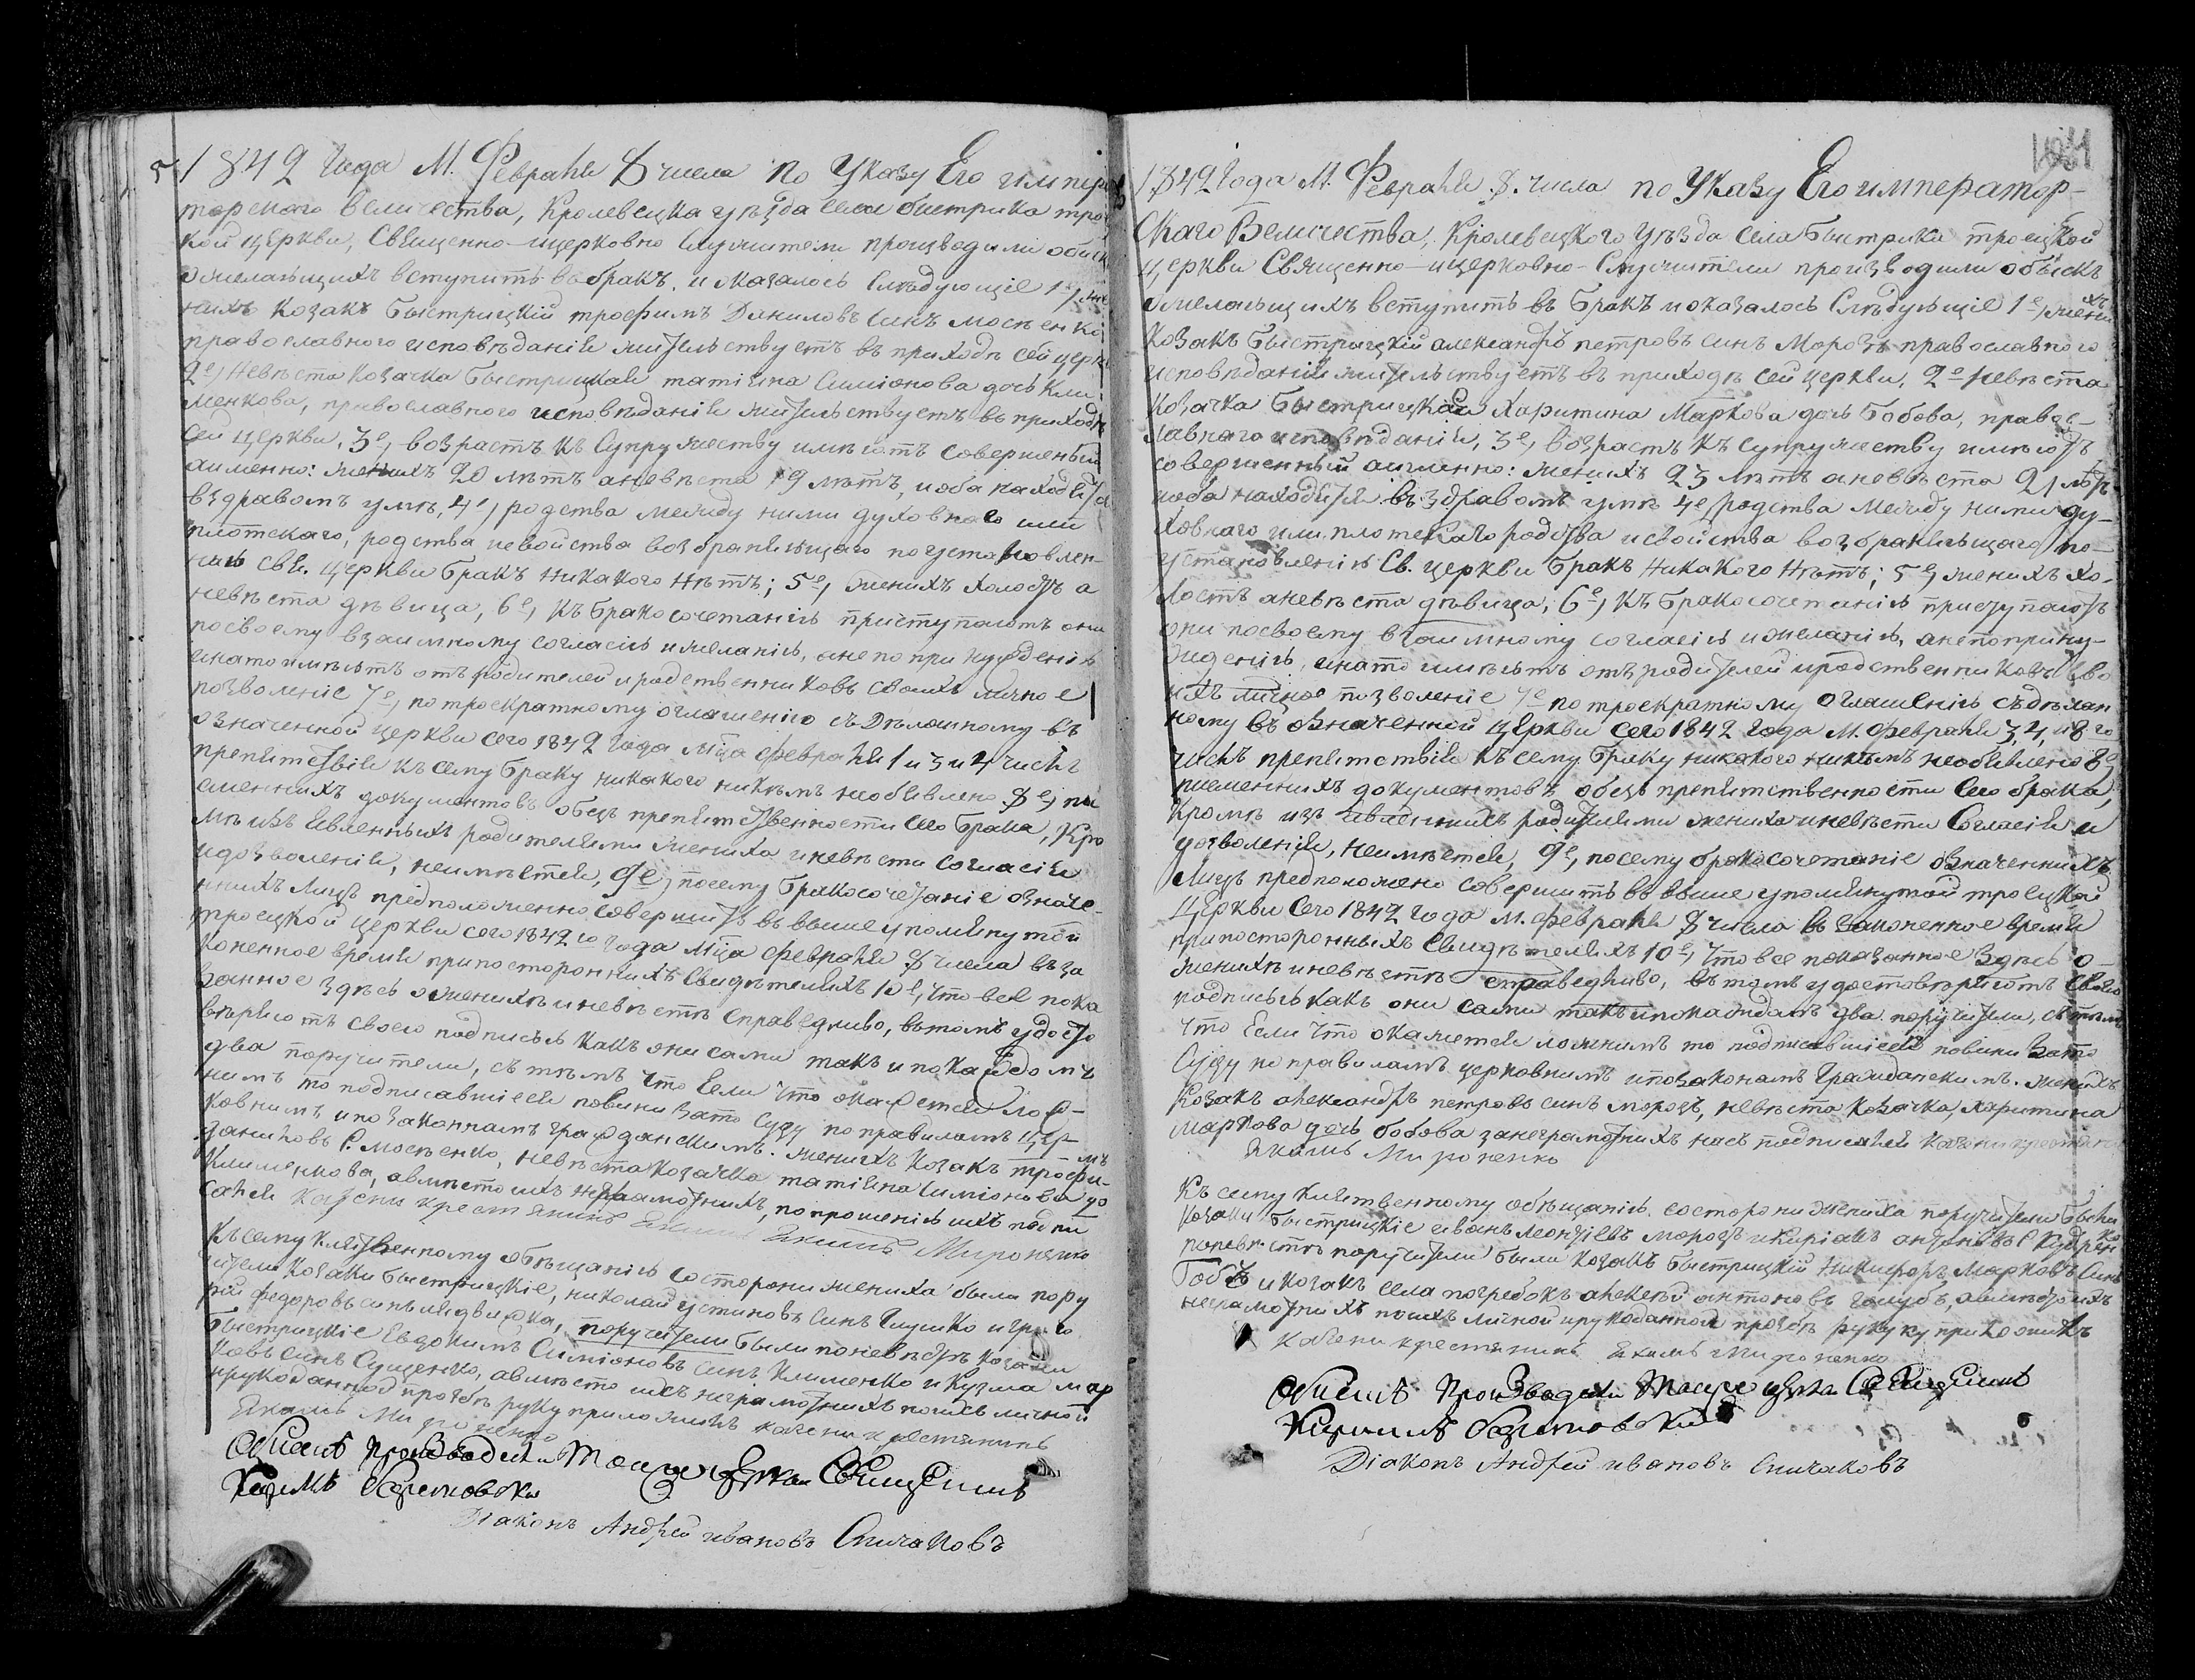 1842 Года М. Февраля 8 числа по Указу Его импера
торского величества, Кролевецка уѣзда села быстрика тро
кой церкви, Священно-ицерковно служители производили обиск
ожелающихъ вступить въ бракъ, и оказалось слѣдующіе 1е, же
нихъ козакъ быстрицкій трофимъ Даниловъ синъ мосѣенко
православного исповѣданія жительствуетъ въ приходѣ сей церк
2е, Невѣста козачка быстрицкая татіяна Симіонова дочь Кли
менкова, православного исповѣданія жительствуетъ въ приходѣ
сей церкви, 3е, возрастъ къ супружеству имѣютъ совершеный
аименно: женихъ 20 лѣтъ аневѣста 19 лѣтъ, иоба находятся
въздравомъ умѣ, 4е, родства между ними духовнаго или
плотскаго, родства исвойства возбраняющаго поустановлен-
нию свя. церкви бракъ никакого нѣтъ; 5е, женихъ холостъ а
невѣста дѣвица, 6е, къ бракосочетанію приступаютъ они
посвоему взаимному согласію ижеланію, анепопринужденію
инато имѣютъ отъ родителей иродственниковъ своихъ личное
позволеніе 7е, потроекратному оглашенію съдѣланному въ
означенной церкви сего 1842 года мца февраля 1 и 3 и 4 числъ
препятствія къ сему браку никакого никѣмъ необявлено 8е, пи
сменнихъ документовъ обезъ препятственности сего брака, кро
мѣ изъявленныхъ родителями жениха иневѣсти согласія
идозволенія, неимѣется, 9е, посему бракосочетаніе означе-
ннихъ лицъ предположенно совершить въ вышеупомянутой
троецкой церкви сего 1842го года мца февраля 8 числа въ за
коненное время припостороннихъ свидѣтеляхъ 10е, что все пока
занное здѣсь оженихѣ иневѣстѣ справедливо, въ томъ удосто
вѣряютъ своею подписью какъ они сами такъ и покаждомъ
два поручители, съ тѣмъ что Если что окажется лож-
нимъ то подписавшіеся повини зато суду по правиламъ цер-
ковнимъ и по законнамъ гражданскимъ. женихъ козакъ трофимъ
даниловъ с. мосѣенко, невѣста козачка татіяна Симіонова до
Клименкова, авмѣсто ихъ неграмотнихъ, попрошенію ихъ подпи
сался казени крестянинъ Якимъ Мироненко
Къ сему клятвенному обѣщанію состорони жениха были пору
чители козаки быстрицкіе, николай устиновъ синъ Глушко и григо
рій федоровъ синъ медвидка, поручители были поневѣстѣ козаки
быстрицкіе Евдокимъ Симіоновъ синъ Клименко и Кузма мар
ковъ синъ Сущенко, авмѣсто ихъ неграмотнихъ поихъ личной
ирукоданной прозбѣ руку приложилъ казени крестянинъ
Якимъ Мироненко
Обискъ производили Тоиже церкви Священикъ
Діаконъ Андрей ивановъ Спичаковъ
1842 Года М. Февраля 8. числа по Указу Его император-
скаго Величества, Кролевецкого уѣзда села быстрика троецкой
церкви Священно-ицерковно-служители производили обыскъ
ожелающихъ вступить въ бракъ иоказалось слѣдующіе 1е, женихъ
козакъ быстрицкій александръ петровъ синъ Морозъ православного
исповѣданія жительствуетъ въ приходѣ сей церкви, 2е невѣста
козачка быстрицкая Харитина Маркова дочь бобова, правос-
лавнаго исповѣданія, 3е, возрастъ къ супружеству имѣютъ
совершенный аименно: женихъ 23 лѣтъ аневѣста 21 лѣтъ
иоба находятся въздравомъ умѣ 4е, родства между ними ду-
ховнаго или плотскаго родства исвойства возбраняющаго по-
установленію Св. церкви бракъ никакого нѣтъ; 5е, женихъ хо-
лостъ аневѣста дѣвица, 6е, къ бракосочетанію приступаютъ
они посвоему взаимному согласію ижеланію, анепоприну-
жденію, инато имѣютъ отъ родителей иродственниковъ сво
ихъ личное позволеніе 7е потроекратному оглашенію съдѣлан
ному въ означенной церкви сего 1842 года М. февраля 3, 4, и 8го
числъ препятствія къ сему браку никакого никѣмъ необявлено 8е,
писменнихъ документовъ обезъ препятственности сего брака,
кромѣ изъ явленнихъ родителями жениха иневѣсти согласія и
дозволенія, неимѣется, 9е, посему бракосочетаніе означеннихъ
лицъ предположено совершить въ выше упомянутой троецкой
церкви сего 1842 года М. февраля 8 числа въ законенное время
припосторонныхъ свидѣтеляхъ 10е, что все показанное здѣсь о-
женихѣ иневѣстѣ справедливо, въ томъ удостовѣряютъ своею
подписью какъ они сами такъ и покаждамъ два поручители, съ тѣмъ
что Если что окажется ложнимъ то подписавшіеся повини зато
суду по правиламъ церковнимъ ипозаконамъ гражданскимъ. женихъ
козакъ александръ петровъ синъ морозъ, невѣста козачка харитина
маркова дочь бобова занеграмотнихъ нихъ подписался казени крестянин
Якимъ Мироненко
Къ сему клятвенному обѣщанію, состорони жениха поручители были
козаки быстрицкіе иванъ леонтіевъ морозъ икиріакъ антоновъ с Кудрен
поневѣстѣ поручители были козакъ быстрицкій никифоръ Марковъ Синъ
Бобъ и козакъ села погребокъ алексѣй антоновъ голубъ, авмѣсто ихъ
неграмотнихъ поихъ личной ирукоданной прозбѣ руку приложилъ
казени крестянинъ Якимъ Мироненко
Обискъ производили Тоиже церкви Священикъ
Діаконъ Андрей ивановъ Спичаковъ